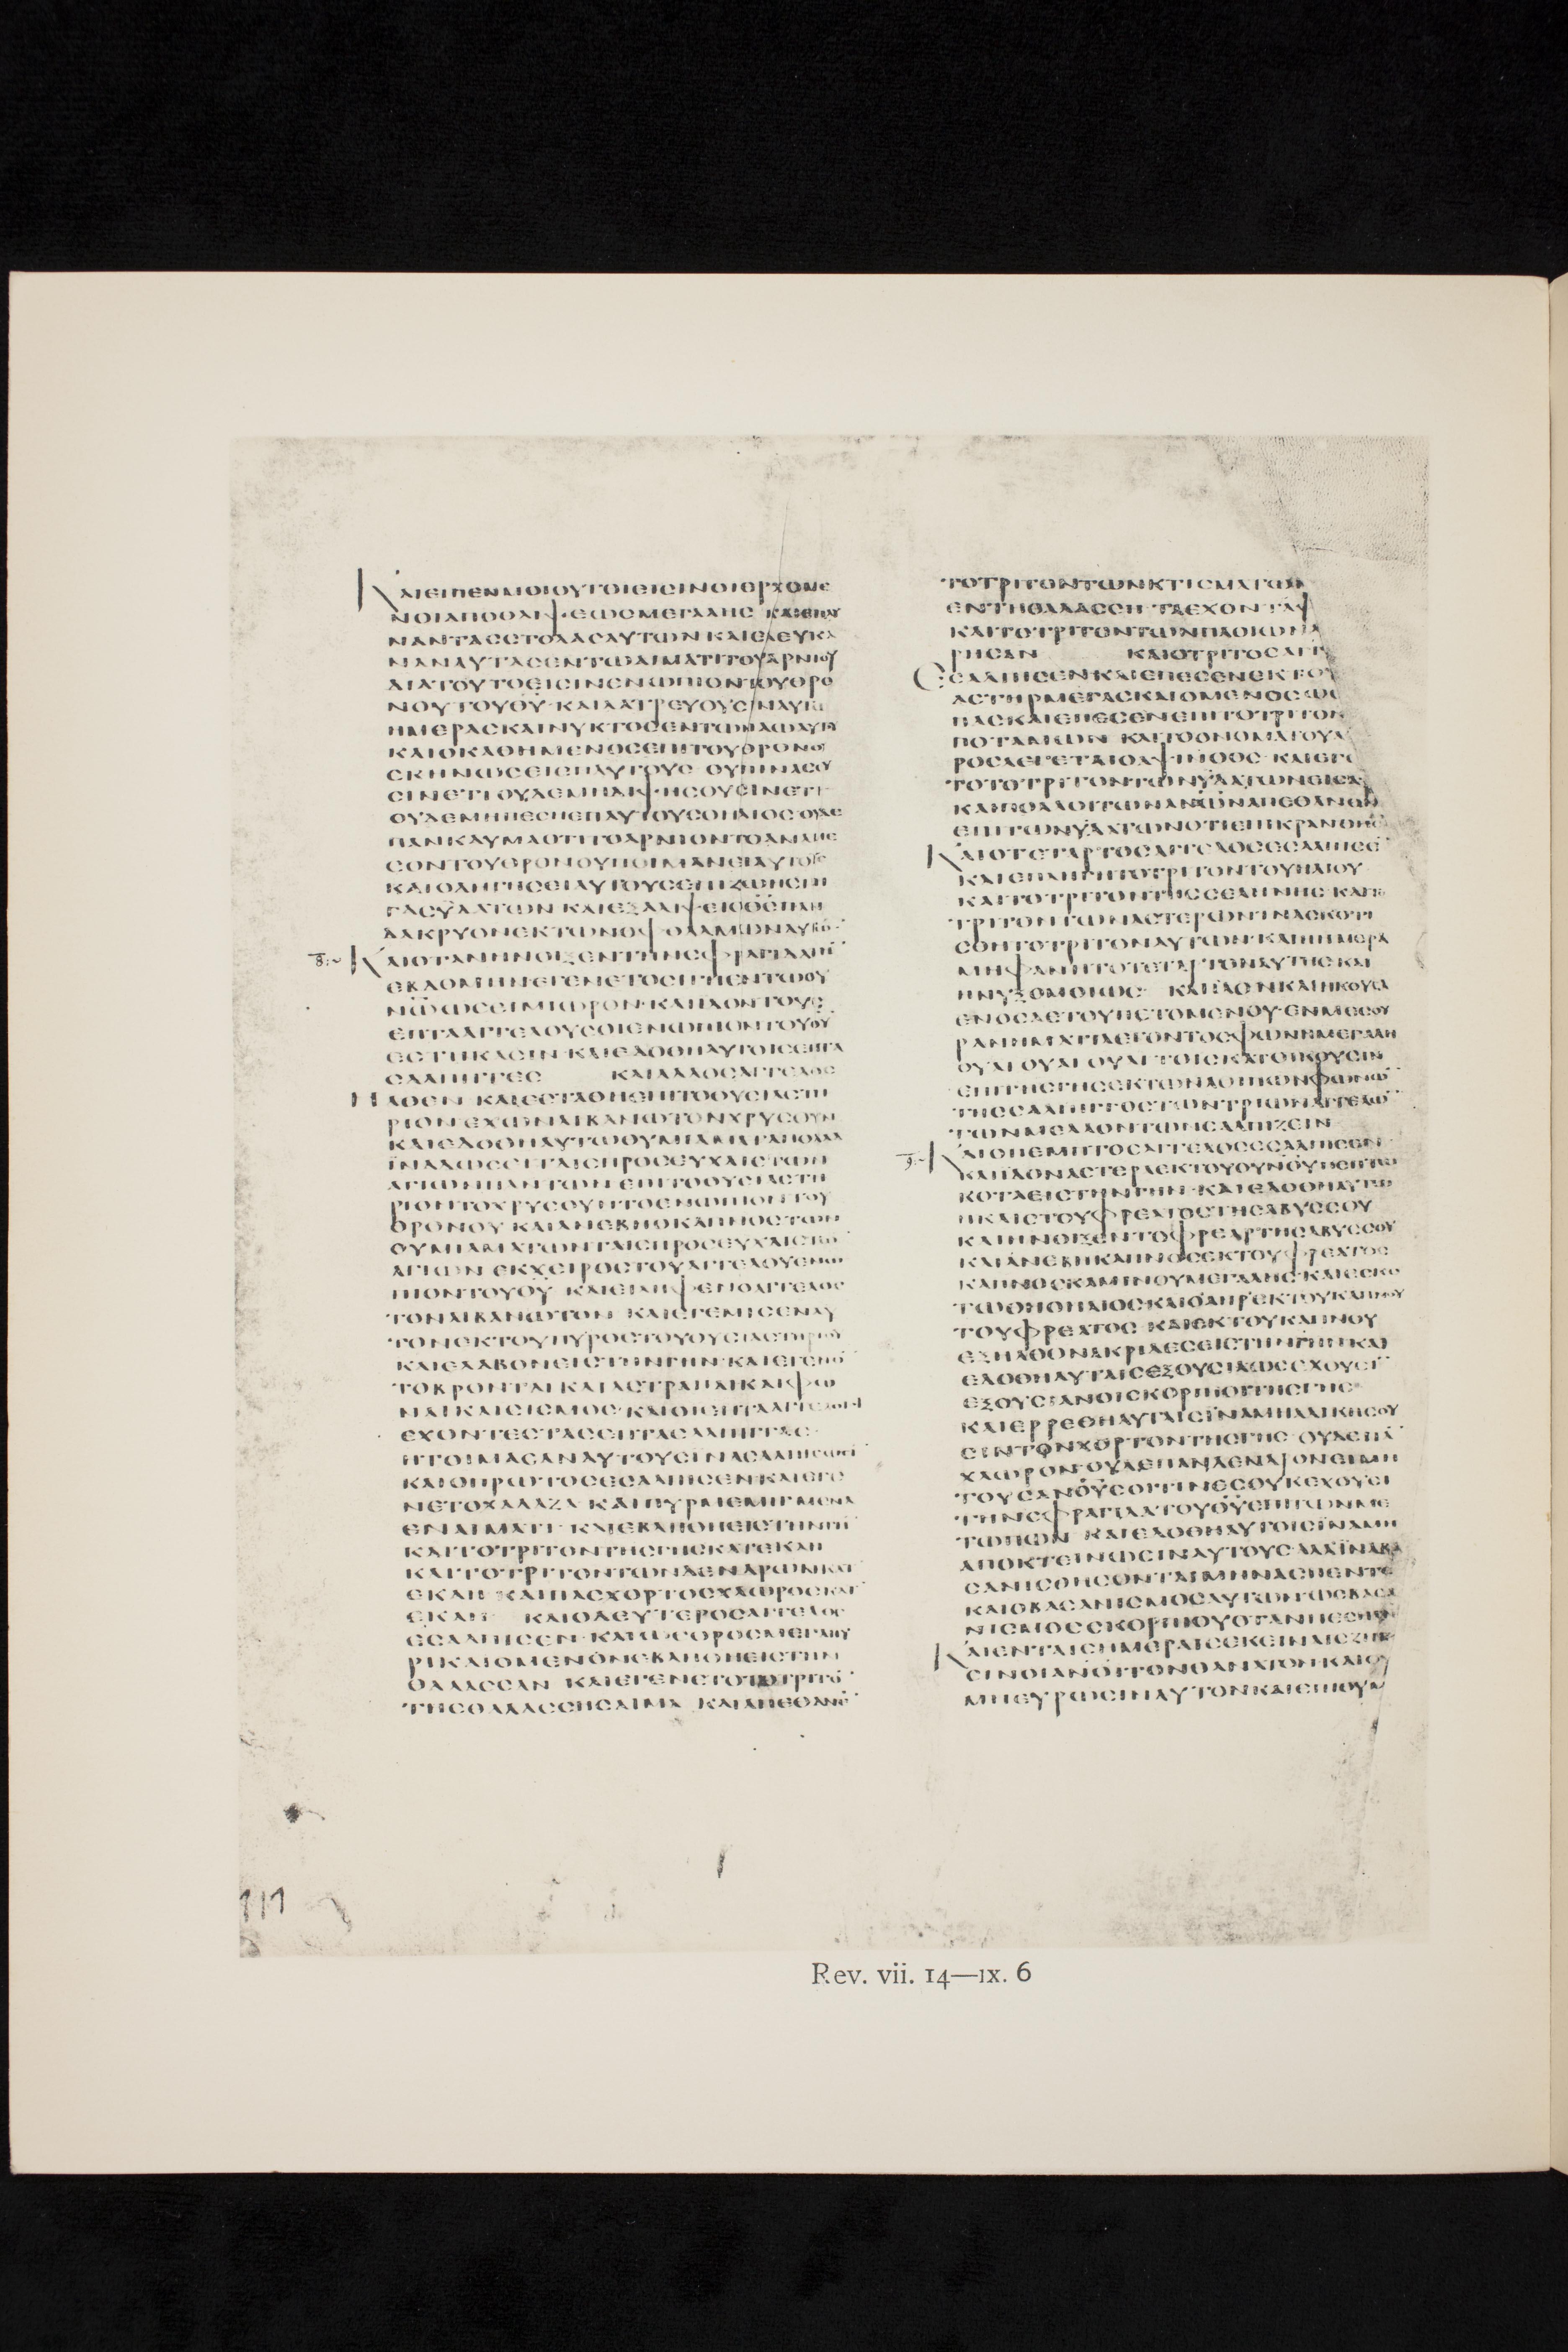 ΚΑΙΕΙΠΕΝΜΟΙΟΥΤΟΙΕΙϹΙΝΟΙΕΡΧΟΜΕ
ΝΟΙΑΠΟΘΛΙΨΕΩϹΜΕΓΑΛΗϹ ΚΑΙΕΠΛΥ
ΝΑΝΤΑϹϹΤΟΛΑϹΑΥΤΩΝ ΚΑΙΕΛΕΥΚΑ
ΝΑΝΑΥΤΑϹΕΝΤΩΑΙΜΑΤΙΤΟΥΑΡΝΙΟΥ
ΔΙΑΤΟΥΤΟΕΙϹΙΝΕΝΩΠΙΟΝΤΟΥΘΡΟ
ΝΟΥΤΟΥΘ̅Υ̅·ΚΑΙΛΑΤΡΕΥΟΥϹΙΝΑΥΤΩ
ΗΜΕΡΑϹΚΑΙΝΥΚΤΟϹΕΝΤΩΝΑΩΑΥΤΟΥ
ΚΑΙΟΚΑΘΗΜΕΝΟϹΕΠΙΤΟΥΘΡΟΝΟΥ
ϹΚΗΝΩϹΕΙΕΠΑΥΤΟΥϹ ΟΥΠΙΝΑϹΟΥ
ϹΙΝΕΤΙ ΟΥΔΕΜΗΔΙΨΗϹΟΥϹΙΝΕΤΙ
ΟΥΔΕΜΗΠΕϹΗΕΠΑΥΤΟΥϹΟΗΛΙΟϹ·ΟΥΔΕ
ΠΑΝΚΑΥΜΑΟΤΙΤΟΑΡΝΙΟΝΤΟΑΝΑΜΕ
ϹΟΝΤΟΥΘΡΟΝΟΥΠΟΙΜΑΝΕΙΑΥΤΟΥϹ
ΚΑΙΟΔΗΓΗϹΕΙΑΥΤΟΥϹΕΠΙΖΩΗϹΠΗ
ΓΑϹΥΔΑΤΩΝ ΚΑΙΕΞΑΛΙΨΕΙΟΘ̅Ϲ̅ΠΑΝ
ΔΑΚΡΥΟΝΕΚΤΩΝΟΦΘΑΛΜΩΝΑΥΤΩ̅·
ΚΑΙΟΤΑΝΗΝΟΙΞΕΝΤΗΝϹΦΡΑΓΙΔΑΤΗ̅
ΕΒΔΟΜΗΝΕΓΕΝΕΤΟϹΙΓΗΕΝΤΩΟΥ
ΝΩΩϹΕΙΜΙΩΡΟΝ·ΚΑΙΙΔΟΝΤΟΥϹ
ΕΠΤΑΑΓΓΕΛΟΥϹΟΙΕΝΩΠΙΟΝΤΟΥΘ̅Υ̅
ΕϹΤΗΚΑϹΙΝ·ΚΑΙΕΔΟΘΗΑΥΤΟΙϹΕΠΤΑ
ϹΑΛΠΙΓΓΕϹ ΚΑΙΑΛΛΟϹΑΓΓΕΛΟϹ
ΗΛΘΕΝ ΚΑΙΕϹΤΑΘΗΕΠΙΤΟΘΥϹΙΑϹΤΗ
ΡΙΟΝΕΧΩΝΛΙΒΑΝΩΤΟΝΧΡΥϹΟΥΝ
ΚΑΙΕΔΟΘΗΑΥΤΩΘΥΜΙΑΜΑΤΑΠΟΛΛΑ
ΙΝΑΔΩϹΕΙΤΑΙϹΠΡΟϹΕΥΧΑΙϹΤΩΝ
ΑΓΙΩΝΠΑΝΤΩΝ ΕΠΙΤΟΘΥϹΙΑϹΤΗ
ΡΙΟΝΤΟΧΡΥϹΟΥΝΤΟΕΝΩΠΙΟΝΤΟΥ
ΘΡΟΝΟΥ ΚΑΙΑΝΕΒΗΟΚΑΠΝΟϹΤΩΝ
ΘΥΜΙΑΜΑΤΩΝΤΑΙϹΠΡΟϹΕΥΧΑΙϹΤΩ̅
ΑΓΙΩΝ ΕΚΧΕΙΡΟϹΤΟΥΑΓΓΕΛΟΥΕΝΩ
ΠΙΟΝΤΟΥΘ̅Υ̅ ΚΑΙΕΙΛΗΦΕΝΟΑΓΓΕΛΟϹ
ΤΟΝΛΙΒΑΝΩΤΟΝ ΚΑΙΕΓΕΜΙϹΕΝΑΥ
ΤΟΝΕΚΤΟΥΠΥΡΟϹΤΟΥΘΥϹΙΑϹΤΗΡΙΟΥ
ΚΑΙΕΛΑΒΟΝΕΙϹΤΗΝΓΗΝ·ΚΑΙΕΓΕΝΟ
ΤΟΒΡΟΝΤΑΙΚΑΙΑϹΤΡΑΠΑΙΚΑΙΦΩ
ΝΑΙΚΑΙϹΙϹΜΟϹ·ΚΑΙΟΙΕΠΤΑΑΓΓΕΛΟΙΟΙ
ΕΧΟΝΤΕϹΤΑϹΕΠΤΑϹΑΛΠΙΓΓΑϹ
ΗΤΟΙΜΑϹΑΝΑΥΤΟΥϹΙΝΑϹΑΛΠΙϹΩϹΙ̅
ΚΑΙΟΠΡΩΤΟϹΕϹΑΛΠΙϹΕΝΚΑΙΕΓΕ
ΝΕΤΟΧΑΛΑΖΑ ΚΑΙΠΥΡΜΕΜΙΓΜΕΝΑ
ΕΝΑΙΜΑΤΙ ΚΑΙΕΒΛΗΘΗΕΙϹΤΗΝΓΗ̅
ΚΑΙΤΟΤΡΙΤΟΝΤΗϹΓΗϹΚΑΤΕΚΑΗ
ΚΑΙΤΟΤΡΙΤΟΝΤΩΝΔΕΝΔΡΩΝΚΑΤ
ΕΚΑΗ ΚΑΙΠΑϹΧΟΡΤΟϹΧΛΩΡΟϹΚΑΤ
ΕΚΑΗ ΚΑΙΟΔΕΥΤΕΡΟϹΑΓΓΕΛΟϹ
ΕϹΑΛΠΙϹΕΝ·ΚΑΙΩϹΟΡΟϹΜΕΓΑΠΥ
ΡΙΚΑΙΟΜΕΝΟΝΕΒΛΗΘΗΕΙϹΤΗΝ
ΘΑΛΑϹϹΑΝ ΚΑΙΕΓΕΝΕΤΟΤΟΤΡΙΤΟ̅
ΤΗϹΘΑΛΑϹϹΗϹΑΙΜΑ ΚΑΙΑΠΕΘΑΝΕ̅
ΤΟΤΡΙΤΟΝΤΩΝΚΤΙϹΜΑΤΩΝ
ΕΝΤΗΘΑΛΑϹϹΗ ΤΑΕΧΟΝΤΑΨ
ΚΑΙΤΟΤΡΙΤΟΝΤΩΝΠΛΟΙΩΝΔ
ΡΗϹΑΝ ΚΑΙΟΤΡΙΤΟϹΑΓΓ
ΕϹΑΛΠΙϹΕΝΚΑΙΕΠΕϹΕΝΕΚΤΟΥ
ΑϹΤΗΡΜΕΓΑϹΚΑΙΟΜΕΝΟϹΩϹ
ΠΑϹΚΑΙΕΠΕϹΕΝΕΠΙΤΟΤΡΙΤΟΝ
ΠΟΤΑΜΩΝ ΚΑΙΤΟΟΝΟΜΑΤΟΥΑ
ΡΟϹΛΕΓΕΤΑΙΟΑΨΙΝΘΟϹ·ΚΑΙΕΓΕ
ΤΟΤΟΤΡΙΤΟΝΤΩΝΥΔΑΤΩΝΕΙϹΑΨ
ΚΑΙΠΟΛΛΟΙΤΩΝΑΝ̅Ω̅Ν̅ΑΠΕΘΑΝΟΝ
ΕΠΙΤΩΝΥΔΑΤΩΝΟΤΙΕΠΙΚΡΑΝΘΗϹΑ̅
ΚΑΙΟΤΕΤΑΡΤΟϹΑΓΓΕΛΟϹΕϹΑΛΠΙϹΕ̅
ΚΑΙΕΠΛΗΓΗΤΟΤΡΙΤΟΝΤΟΥΗΛΙΟΥ
ΚΑΙΤΟΤΡΙΤΟΝΤΗϹϹΕΛΗΝΗϹ·ΚΑΙΤΟ
ΤΡΙΤΟΝΤΩΝΑϹΤΕΡΩΝΙΝΑϹΚΟΤΙ
ϹΘΗΤΟΤΡΙΤΟΝΑΥΤΩΝ·ΚΑΙΗΗΜΕΡΑ
ΜΗΦΑΝΗΤΟΤΕΤΑΡΤΟΝΑΥΤΗϹΚΑΙ
ΗΝΥΞΟΜΟΙΩϹ· ΚΑΙΙΔΟΝΚΑΙΗΚΟΥϹΑ
ΕΝΟϹΑΕΤΟΥΠΕΤΟΜΕΝΟΥ·ΕΝΜΕϹΟΥ
ΡΑΝΗΜΑΤΙΛΕΓΟΝΤΟϹΦΩΝΗΜΕΓΑΛΗ
ΟΥΑΙ ΟΥΑΙ ΟΥΑΙ ΤΟΙϹΚΑΤΟΙΚΟΥϹΙΝ
ΕΠΙΤΗϹΓΗϹΕΚΤΩΝΛΟΙΠΩΝΦΩΝΩ̅
ΤΗϹϹΑΛΠΙΓΓΟϹΤΩΝΤΡΙΩΝΑΓΓΕΛΩ̅
ΤΩΝΜΕΛΛΟΝΤΩΝϹΑΛΠΙΖΕΙΝ
ΚΑΙΟΠΕΜΠΤΟϹΑΓΓΕΛΟϹΕϹΑΛΠΙϹΕΝ
ΚΑΙΙΔΟΝΑϹΤΕΡΑΕΚΤΟΥΟΥΝΟΥΠΕΠΤΩ
ΚΟΤΑΕΙϹΤΗΝΓΗΝ·ΚΑΙΕΔΟΘΗΑΥΤΩ
ΗΚΛΙϹΤΟΥΦΡΕΑΤΟϹΤΗϹΑΒΥϹϹΟΥ
ΚΑΙΗΝΟΙΞΕΝΤΟΦΡΕΑΡΤΗϹΑΒΥϹϹΟΥ
ΚΑΙΑΝΕΒΗΚΑΠΝΟϹΕΚΤΟΥΦΡΕΑΤΟϹ
ΚΑΠΝΟϹΚΑΜΙΝΟΥΜΕΓΑΛΗϹ·ΚΑΙΕϹΚΟ
ΤΩΘΗΟΗΛΙΟϹΚΑΙΟΑΗΡΕΚΤΟΥΚΑΠΝΟΥ
ΤΟΥΦΡΕΑΤΟϹ ΚΑΙΕΚΤΟΥΚΑΠΝΟΥ
ΕΞΗΛΘΟΝΑΚΡΙΔΕϹΕΙϹΤΗΝΓΗΝΚΑΙ
ΕΔΟΘΗΑΥΤΑΙϹΕΞΟΥϹΙΑΩϹΕΧΟΥϹΙ̅
ΕΞΟΥϹΙΑΝΟΙϹΚΟΡΠΙΟΙΤΗϹΓΗϹ·
ΚΑΙΕΡΡΕΘΗΑΥΤΑΙϹΙΝΑΜΗΑΔΙΚΗϹΟΥ
ϹΙΝΤΟΝΧΟΡΤΟΝΤΗϹΓΗϹ·ΟΥΔΕΠΑ̅
ΧΛΩΡΟΝ·ΟΥΔΕΠΑΝΔΕΝΔΡΟΝΕΙΜΗ
ΤΟΥϹΑΝ̅Ο̅Υ̅Ϲ̅ΟΙΤΙΝΕϹΟΥΚΕΧΟΥϹΙ
ΤΗΝϹΦΡΑΓΙΔΑΤΟΥΘ̅Υ̅ΕΠΙΤΩΝΜΕ
ΤΩΠΩΝ ΚΑΙΕΔΟΘΗΑΥΤΟΙϹΙΝΑΜΗ
ΑΠΟΚΤΕΙΝΩϹΙΝΑΥΤΟΥϹ·ΑΛΛΙΝΑΒΑ
ϹΑΝΙϹΘΗϹΟΝΤΑΙΜΗΝΑϹΠΕΝΤΕ
ΚΑΙΟΒΑϹΑΝΙϹΜΟϹΑΥΤΩΝΩϹΒΑϹΑ
ΝΙϹΜΟϹϹΚΟΡΠΙΟΥΟΤΑΝΠΕϹΗ
ΚΑΙΕΝΤΑΙϹΗΜΕΡΑΙϹΕΚΕΙΝΑΙϹΖΗΤΗ
ϹΙΝΟΙΑΝ̅Ο̅Ι̅ΤΟΝΘΑΝΑΤΟΝΚΑΙΟΥ
ΜΗΕΥΡΩϹΙΝΑΥΤΟΝΚΑΙΕΠΙΘΥΜ
Rev. vii. 14—ix. 6